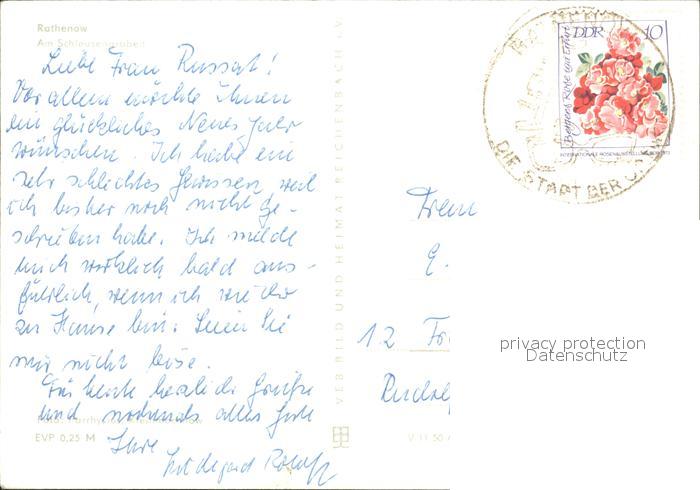 Rathenow
Am Schleusengraben
Liebe Frau Russat!
Vor allem möchte ihnen
ein glückliches Neues Jahr
wünschen. Ich habe ein
sehr schlechtes Gewissen, weil
ich bisher noch nicht ge-
schrieben habe. Ich melde
mich wirklich bald aus-
führlich, wenn ich wieder
zu Hause bin. Seien Sie
mir nicht böse.
Für heute herzliche Grüße
und nochmals alles Gute
Ihre
Hildegard
EVP 0,25 M
VEB BILD UND HEIMAT REICHENBACH i. V.
V 11 50
DDR 10
Bergers Rose von Erfurt
INTERNATIONALE ROSENAUSSTELLUNG 1972
DIE STADT DER
Frau
E.
12 Fr
Rudolf
privacy protection
Datenschutz